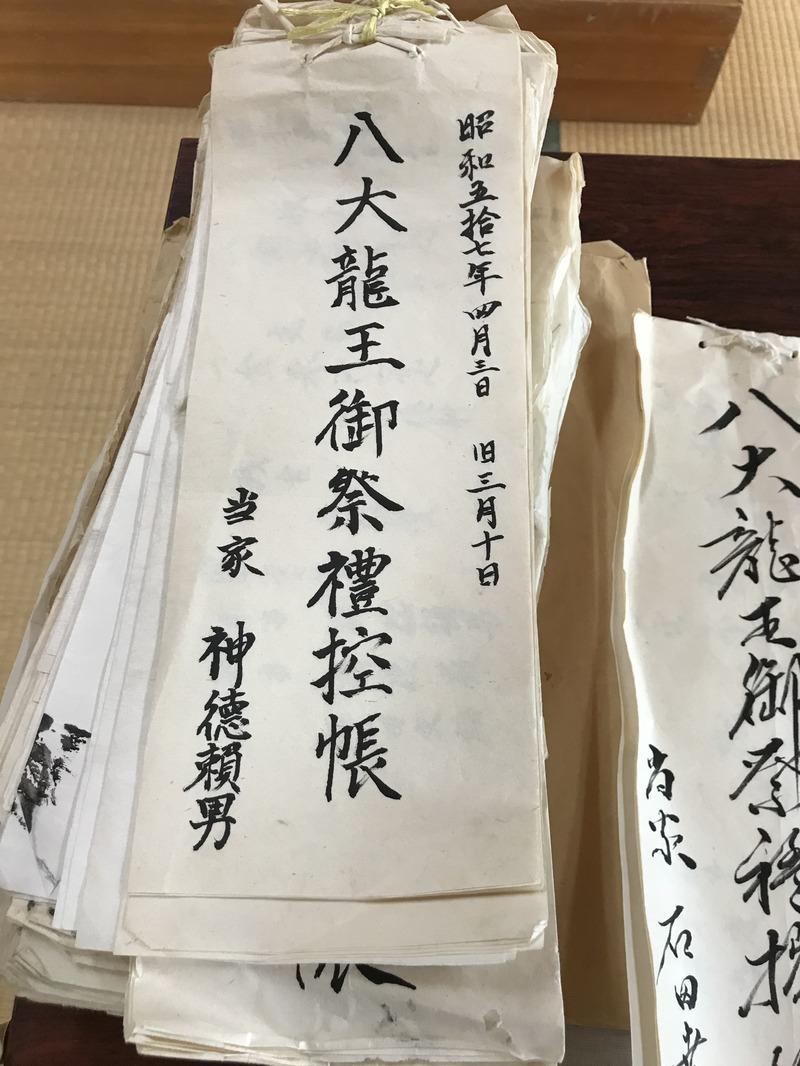 昭和五拾七年四月三日 旧三月十日
八大龍王御祭禮控帳
当家 神德賴男
八大龍王御祭禮控
当家 石田
帳